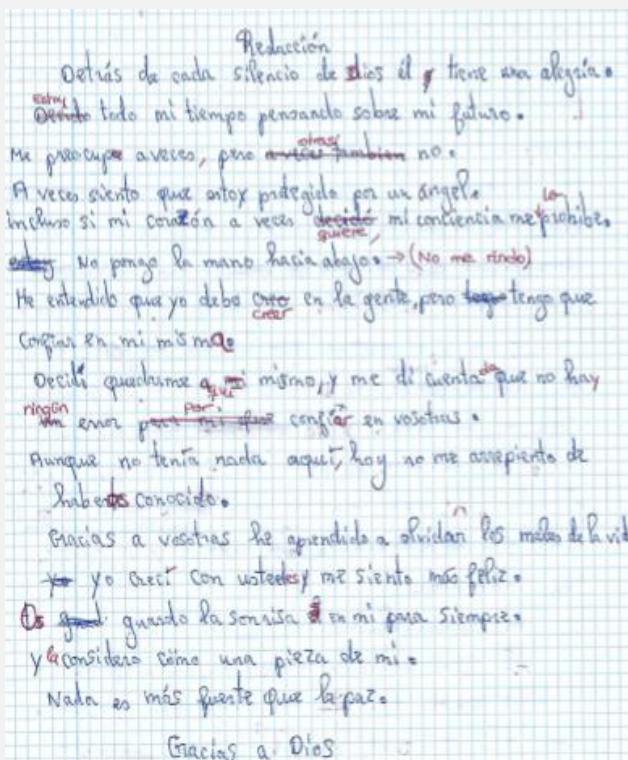 Redacción
Detrás de cada silencio de Dios él tiene una alegría.
estoy todo mi tiempo pensando sobre mi futuro.
Me preocupo a veces, pero otras no.
A veces siento que estoy protegido por un ángel.
incluso si mi corazón a veces quiere, mi conciencia me lo prohibe.
No pongo la mano hacia abajo. → (No me rindo)
He entendido que yo debo creer en la gente, pero tengo que
confiar en mi misma.
Decidí quedarme aquí mismo, y me di cuenta de que no hay
ningún error por confiar en vosotras.
Aunque no tenía nada aquí, hoy no me arrepiento de
haberos conocido.
Gracias a vosotras he aprendido a olvidar los males de la vid
yo crecí con ustedes y me siento más feliz.
Os guardo la sonrisa en mi para siempre.
y la considero como una pieza de mi.
Nada es más fuerte que la paz.
Gracias a Dios